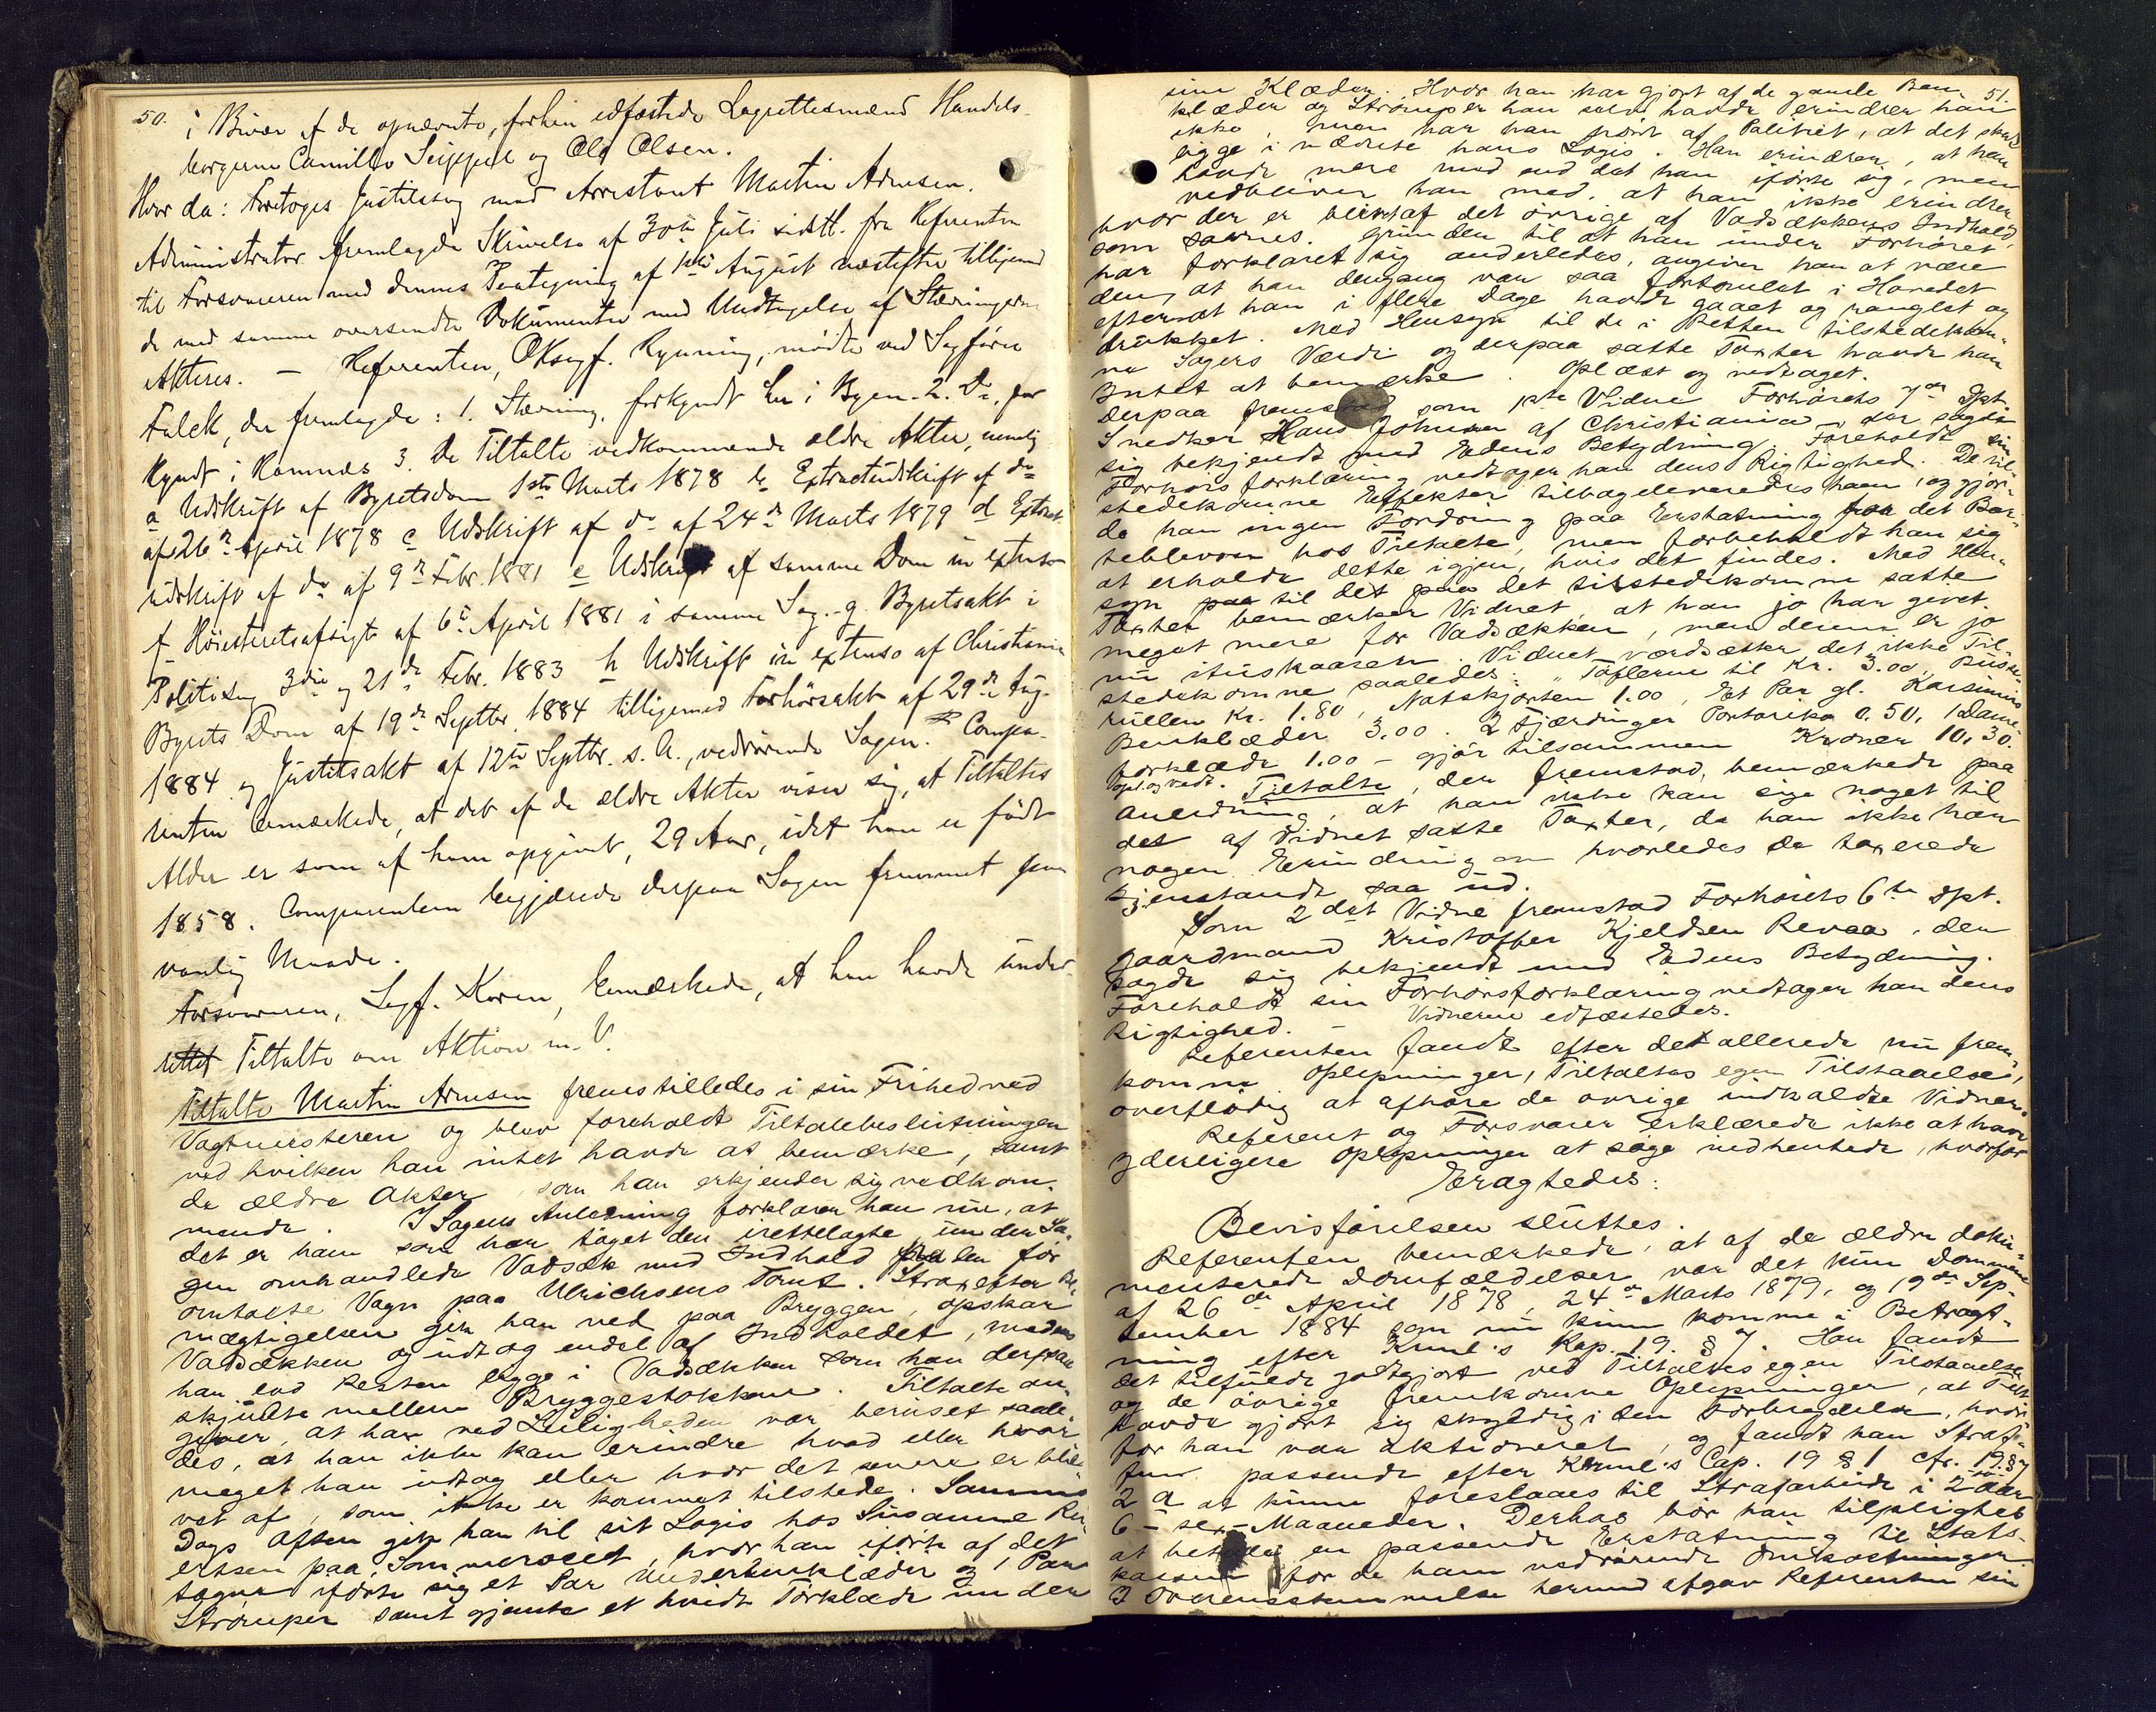 50.
i Bivær af de opnævnte, forhen edfæstede Lagrettesmænd Handels-
borgerne Camillo Seippel og Ole Olsen.
Hvor da: Foretoges Justitssag mod Arrestant Martin Arnesen.
Administrator fremlagde Skrivelse af 30te Juli sidstl. fra Referenten
til Forsvareren med dennes Paategning af 1ste August næstefter tilligemed
de med samme oversendte Dokumenter med Undtagelse af Stævningerne
Akteres. – Referenten, OKsagf. Rynning, mødte ved Sagfører
Falck, der fremlagde: 1. Stævning, forkyndt her i Byen. 2. Do, for-
kyndt i Hamnæs 3. De Tiltalte vedkommende ældre Akter, nemlig
a Udskrift af Byretsdom 1ste Marts 1878 b Extractudskrift af do
af 26de April 1878 c Udskrift af do af 24de Marts 1879 d Extract-
udskrift af do af 9de Febr. 1881 e Udskrift af samme Dom in extenso
f Høiesteretsafsigt af 6te April 1881 i samme Sag. g. Byretsakt i
Politisag 3die og 21de Febr. 1883 h Udskrift in extenso af Christiania
Byrets Dom af 19de Septbr. 1884 tilligemed Forhørsakt af 29de Aug.
1884 og Justitsakt af 12te Septbr. s. A., vedrørende Sagen. Compa-
renten bemærkede, at det af de ældre Akter viser sig, at Tiltaltes
Alder er som af ham opgivet, 29 Aar, idet han er født
1858. Comparenten begjærede derpaa Sagen fremmet paa
vanlig Maade.
Forsvareren, Sagf. Koren, bemærkede, at han havde under-
rettet Tiltalte om Aktion m. V.
Tiltalte Martin Arnesen fremstilledes i sin Frihed ved
Vagtmesteren og blev foreholdt Tiltalebeslutningen
ved hvilken han intet havde at bemærke, samt
de ældre Akter, som han erkjender sig vedkom-
mende. I Sagens Anledning forklarer han nu, at
det er ham som har taget den irettelagte, under Sa-
gen omhandlede Vadsæk med Indhold fra den før
omtalte Vogn paa Ulrichsens Tomt. Strax efter Be-
mægtigelsen gik han ned paa Bryggen, opskar
Vadsækken og udtog endel af Indholdet, medens
han lod Resten ligge i Vadsækken som han derpaa
skjulte mellem Bryggestokkene. Tiltalte an-
giver, at han ved Leiligheden var beruset saale-
des, at han ikke kan erindre hvad eller hvor
meget han udtog eller hvor det senere er ble-
vet af, som ikke er kommet tilstede. Samme
Dags Aften gik han til sit Logis hos Susanne
paa, hvor han iførte af det
tagne iførte sig et Par Underbenklæder og 1 Par
Strømper samt gjemte et hvidt Tørklæde under
51.
sine Klæder. Hvor han har gjort af de gamle Ben-
klæder og Strømper han selv havde erindrer han
ikke, men har han hørt af Politiet, at det skal
ligge i nærheden hans Logis. Han erindrer, at han
havde mere med end det han iførte sig, men
vedbliver han med, at han ikke erindrer
hvor der er blevet af det øvrige af Vadsækkens Indhold,
som savnes. Grunden til at han under Forhøret
har forklaret sig anderledes, angiver han at være
den, at han dengang var saa fortomlet i Hovedet
efterat han i flere Dage havde gaaet og ranglet og
drukket. Med Hensyn til de i Retten tilstedekom-
ne Sagers Værdi og derpaa satte Taxter havde han
Intet at bemærke. Oplæst og vedtaget.
Derpaa fremstod som 1ste Vidne Forhørets 7de Dpt.
Snedker Hans Johnsen af Christiania, der sagde
sig bekjendt med Edens Betydning. Foreholdt sin
Forhørsforklaring vedtager han dens Rigtighed. De til-
stedekomne Effekter tilbageleveredes ham, og gjor-
de han ingen Fordring paa Erstatning for det Bor-
teblevne hos Tiltalte, men forbeholdt han sig
at erholde dette igjen, hvis det findes. Med Hen-
syn til det paa det tilstedekomne satte
Taxter bemærker Vidnet, at han jo har givet
meget mere for Vadsækken, men denne er jo
nu ituskaaren. Vidnet værdsætter det ikke Til-
stedekomne saaledes: Tøflerne til Kr. 3.00,
Kr. 1.80, Natskjorten 1.00, Et Par gl. Karsimirs
Benklæder 3.00. 2 Fjærdinger Portoriko 0.50, 1 Dame-
tørklæde 1.00 – gjør tilsammen Kroner 10,30.
Opl. og vedt. Tiltalte, der fremstod, bemærkede paa
Anledning, at han ikke kan sige noget til
det af Vidnet satte Taxter, da han ikke har
nogen Erindring om hvorledes de taxerede
Gjenstande saa ud.
Som 2det Vidne fremstod Forhørets 6te Dpt.
Gaardmand Kristoffer Kjeldsen Revaa, der
sagde sig bekjendt med Edens Betydning.
Foreholdt sin Forhørsforklaring vedtager han dens
Rigtighed. – Vidnerne edfæstedes.
Referenten fandt efter det allerede nu frem-
komne Oplysninger, Tiltaltes egen Tilstaaelse,
overflødig at afhøre de øvrige indkaldte Vidner.
Referent og Forsvarer erklærede ikke at have
yderligere Oplysninger at søge indhentede, hvorfor
Eragtedes:
Bevisførelsen sluttes.
Referenten bemærkede, at af de ældre doku-
menterede Domfældelser var det kun Dommene
af 26de April 1878, 24de Marts 1879, og 19de Sep-
tember 1884 som nu kunne komme i Betragt-
ning efter Krml's Kap. 19. § 7. Han fandt
det tilfulde godtgjort ved Tiltaltes egen Tilstaaelse
og de øvrige fremkomne Oplysninger, at Tilt.
havde gjort sig skyldig i den Forbrydelse, hvor-
for han var aktioneret, og fandt han Straf-
fen passende efter Krml's Cap. 19 § 1 cfr. 19 § 7
2 a at kunne foreslaaes til Strafarbeide i 2 to Aar
6 – sex – Maaneder. Derhos bør han tilpligtes
at betale en passende Erstatning til Stats-
kassen for de ham vedrørende Omkostninger.
I Overensstemmelse hermed afgav Referenten sin